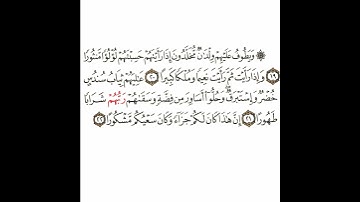 ۞ وَيَطُوفُ عَلَيْهِمْ وِلْدَٰنٌ مُّخَلَّدُونَ إِذَا رَأَيْتَهُمْ حَسِبْتَهُمْ لُؤْلُؤًا مَّنثُورًا
١٩ وَإِذَا رَأَيْتَ ثَمَّ رَأَيْتَ نَعِيمًا وَمُلْكًا كَبِيرًا ٢٠ عَٰلِيَهُمْ ثِيَابُ سُندُسٍ
خُضْرٌ وَإِسْتَبْرَقٌ وَحُلُّوٓا۟ أَسَاوِرَ مِن فِضَّةٍ وَسَقَىٰهُمْ رَبُّهُمْ شَرَابًا
طَهُورًا ٢١ إِنَّ هَٰذَا كَانَ لَكُمْ جَزَآءً وَكَانَ سَعْيُكُم مَّشْكُورًا ٢٢